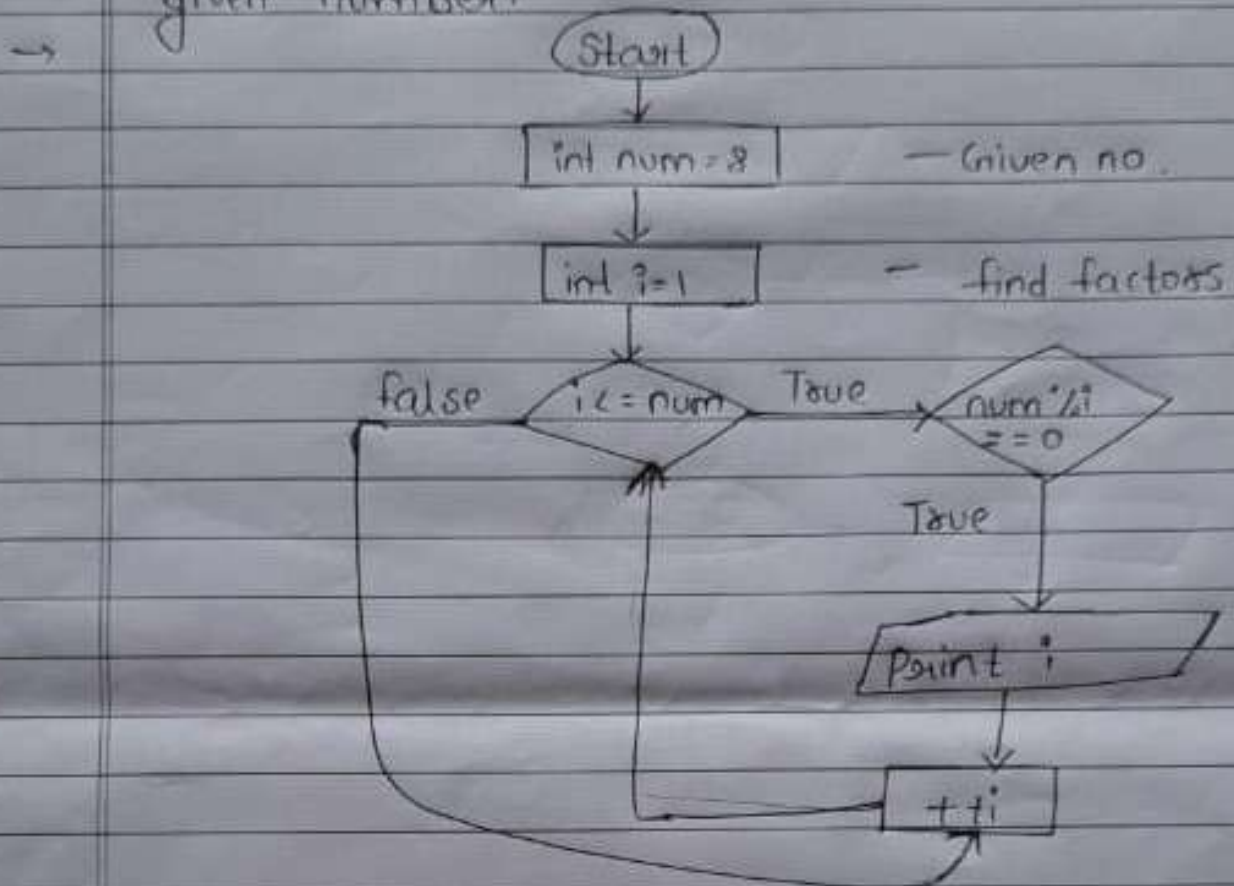 given number.
→
Start
int num = 8
— Given no.
int i=1
- find factors
false
i <= num
True
num % i
= = 0
True
Print i
++i